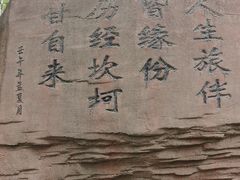 人生旅伴
皆缘份
历经坎坷
甘自来
壬午年孟夏月